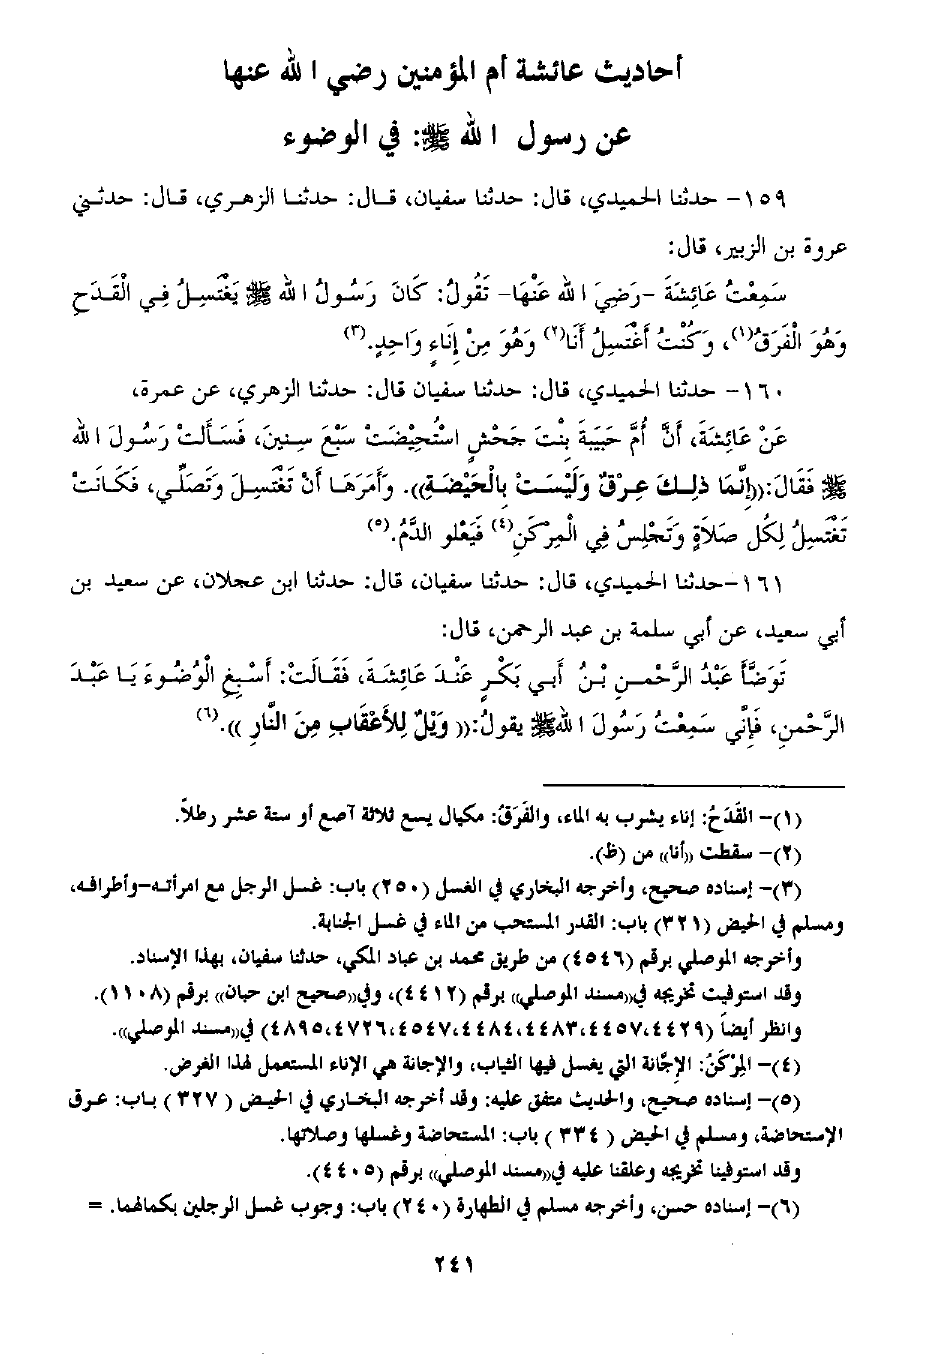 أحاديث عائشة أم المؤمنين رضي الله عنها
عن رسول الله ﷺ: في الوضوء
١٥٩- حدثنا الحميدي، قال: حدثنا سفيان، قال: حدثنا الزهري، قال: حدثني
عروة بن الزبير، قال:
سَمِعْتُ عَائِشَةَ -رَضِيَ اللهُ عَنْهَا- تَقُولُ: كَانَ رَسُولُ اللهِ ﷺ يَغْتَسِلُ فِي الْقَدَحِ
وَهُوَ الْفَرَقُ(١)، وَكُنْتُ أَغْتَسِلُ أَنَا(٢) وَهُوَ مِنْ إِنَاءٍ وَاحِدٍ.(٣)
١٦٠- حدثنا الحميدي، قال: حدثنا سفيان قال: حدثنا الزهري، عن عمرة،
عَنْ عَائِشَةَ، أَنَّ أُمَّ حَبِيبَةَ بِنْتَ جَحْشٍ اسْتُحِيْضَتْ سَبْعَ سِنِينَ، فَسَأَلَتْ رَسُولَ اللهِ
ﷺ فَقَالَ:((إِنَّمَا ذلِكَ عِرْقٌ وَلَيْسَتْ بِالْحَيْضَةِ)). وَأَمَرَهَا أَنْ تَغْتَسِلَ وَتُصَلِّي، فَكَانَتْ
تَغْتَسِلُ لِكُلِّ صَلاَةٍ وَتَجْلِسُ فِي الْمِرْكَنِ(٤) فَيَعْلو الدَّمُ.(٥)
١٦١-حدثنا الحميدي، قال: حدثنا سفيان، قال: حدثنا ابن عجلان، عن سعيد بن
أبي سعيد، عن أبي سلمة بن عبد الرحمن، قال:
تَوَضَّأَ عَبْدُ الرَّحْمنِ بْنُ أَبي بَكْرٍ عَنْدَ عَائِشَةَ، فَقَالَتْ: أَسْبِغِ الْوُضُوءَ يَا عَبْدَ
الرَّحْمنِ، فَإِنِّي سَمِعْتُ رَسُولَ اللهِ ﷺ يقولُ:(( وَيْلٌ لِلأَعْقَابِ مِنَ النَّارِ )).(٦)
(١)- القَدَحُ: إناء يشرب به الماء، والفَرَقُ: مكيال يسع ثلاثة آصع أو ستة عشر رطلاً.
(٢)- سقطت ((أنا)) من (ظ).
(٣)- إسناده صحيح، وأخرجه البخاري في الغسل (٢٥٠) باب: غسل الرجل مع امرأته-وأطرافه،
ومسلم في الحيض (٣٢١) باب: القدر المستحب من الماء في غسل الجنابة.
وأخرجه الموصلي برقم (٤٥٤٦) من طريق محمد بن عباد المكي، حدثنا سفيان، بهذا الإسناد.
وقد استوفيت تخريجه في((مسند الموصلي)) برقم (٤٤١٢)، وفي((صحيح ابن حبان)) برقم (١١٠٨).
وانظر أيضاً (٤٤٢٩،٤٤٥٧،٤٤٨٣،٤٤٨٤،٤٥٤٧،٤٧٢٦،٤٨٩٥) في((مسند الموصلي)).
(٤)- المِرْكَنُ: الإِجَّانة التي يغسل فيها الثياب، والإجانة هي الإناء المستعمل لهذا الغرض.
(٥)- إسناده صحيح، والحديث متفق عليه: وقد أخرجه البخاري في الحيض ( ٣٢٧ ) باب: عرق
الإستحاضة، ومسلم في الحيض ( ٣٣٤ ) باب: المستحاضة وغسلها وصلاتها.
وقد استوفينا تخريجه وعلقنا عليه في((مسند الموصلي)) برقم (٤٤٠٥).
(٦)- إسناده حسن، وأخرجه مسلم في الطهارة (٢٤٠) باب: وجوب غسل الرجلين بكمالهما. =
٢٤١